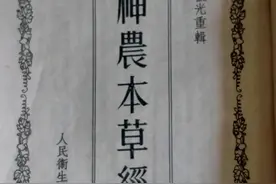 光重輯
神農本草經
人民衛生